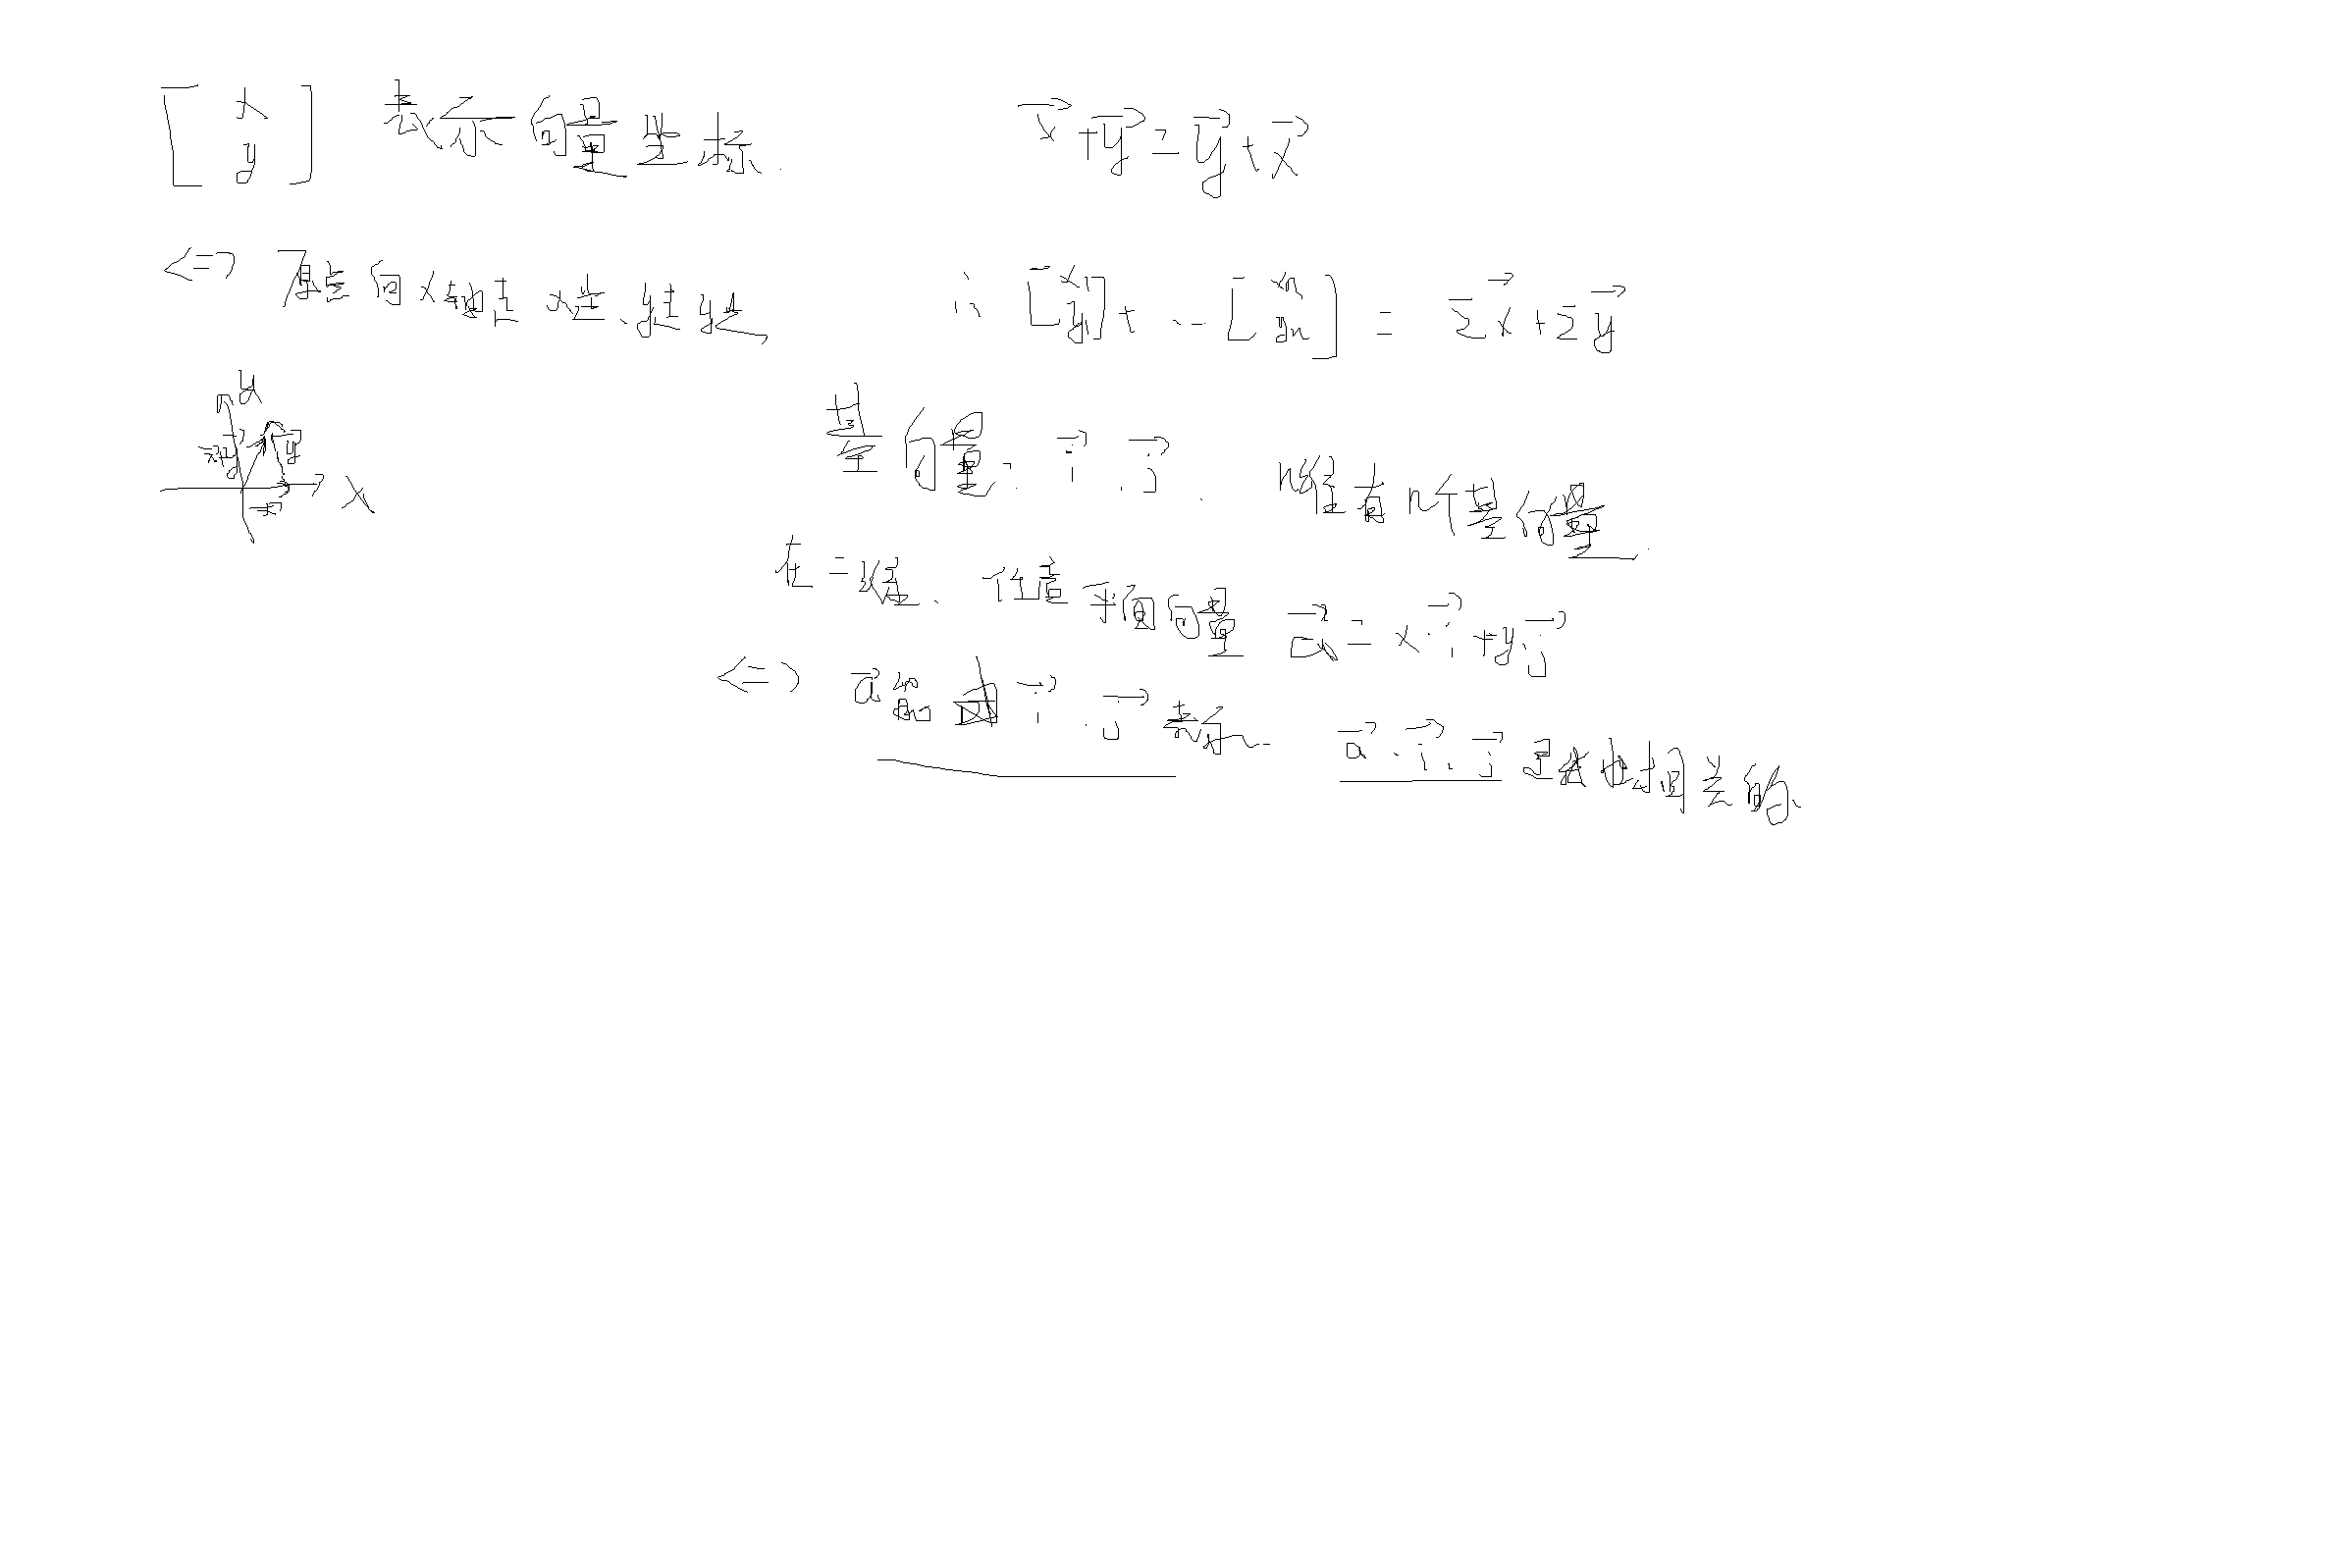 [x y] 表示向量坐标.
x⃗+y⃗=y⃗+x⃗
<=> 原点向x轴走x步、y走y步
∴ [x₁ y₁]+ … [xn yn] = Σx⃗+Σy⃗
y
x⃗+y⃗ y⃗
x⃗ x
基向量: i⃗ . j⃗ . n维有n个基向量.
在二维、任意平面向量 a⃗ = x·i⃗+y·j⃗
<=> a⃗能由i⃗ . j⃗表示. a⃗ . i⃗ . j⃗ 是线性相关的、